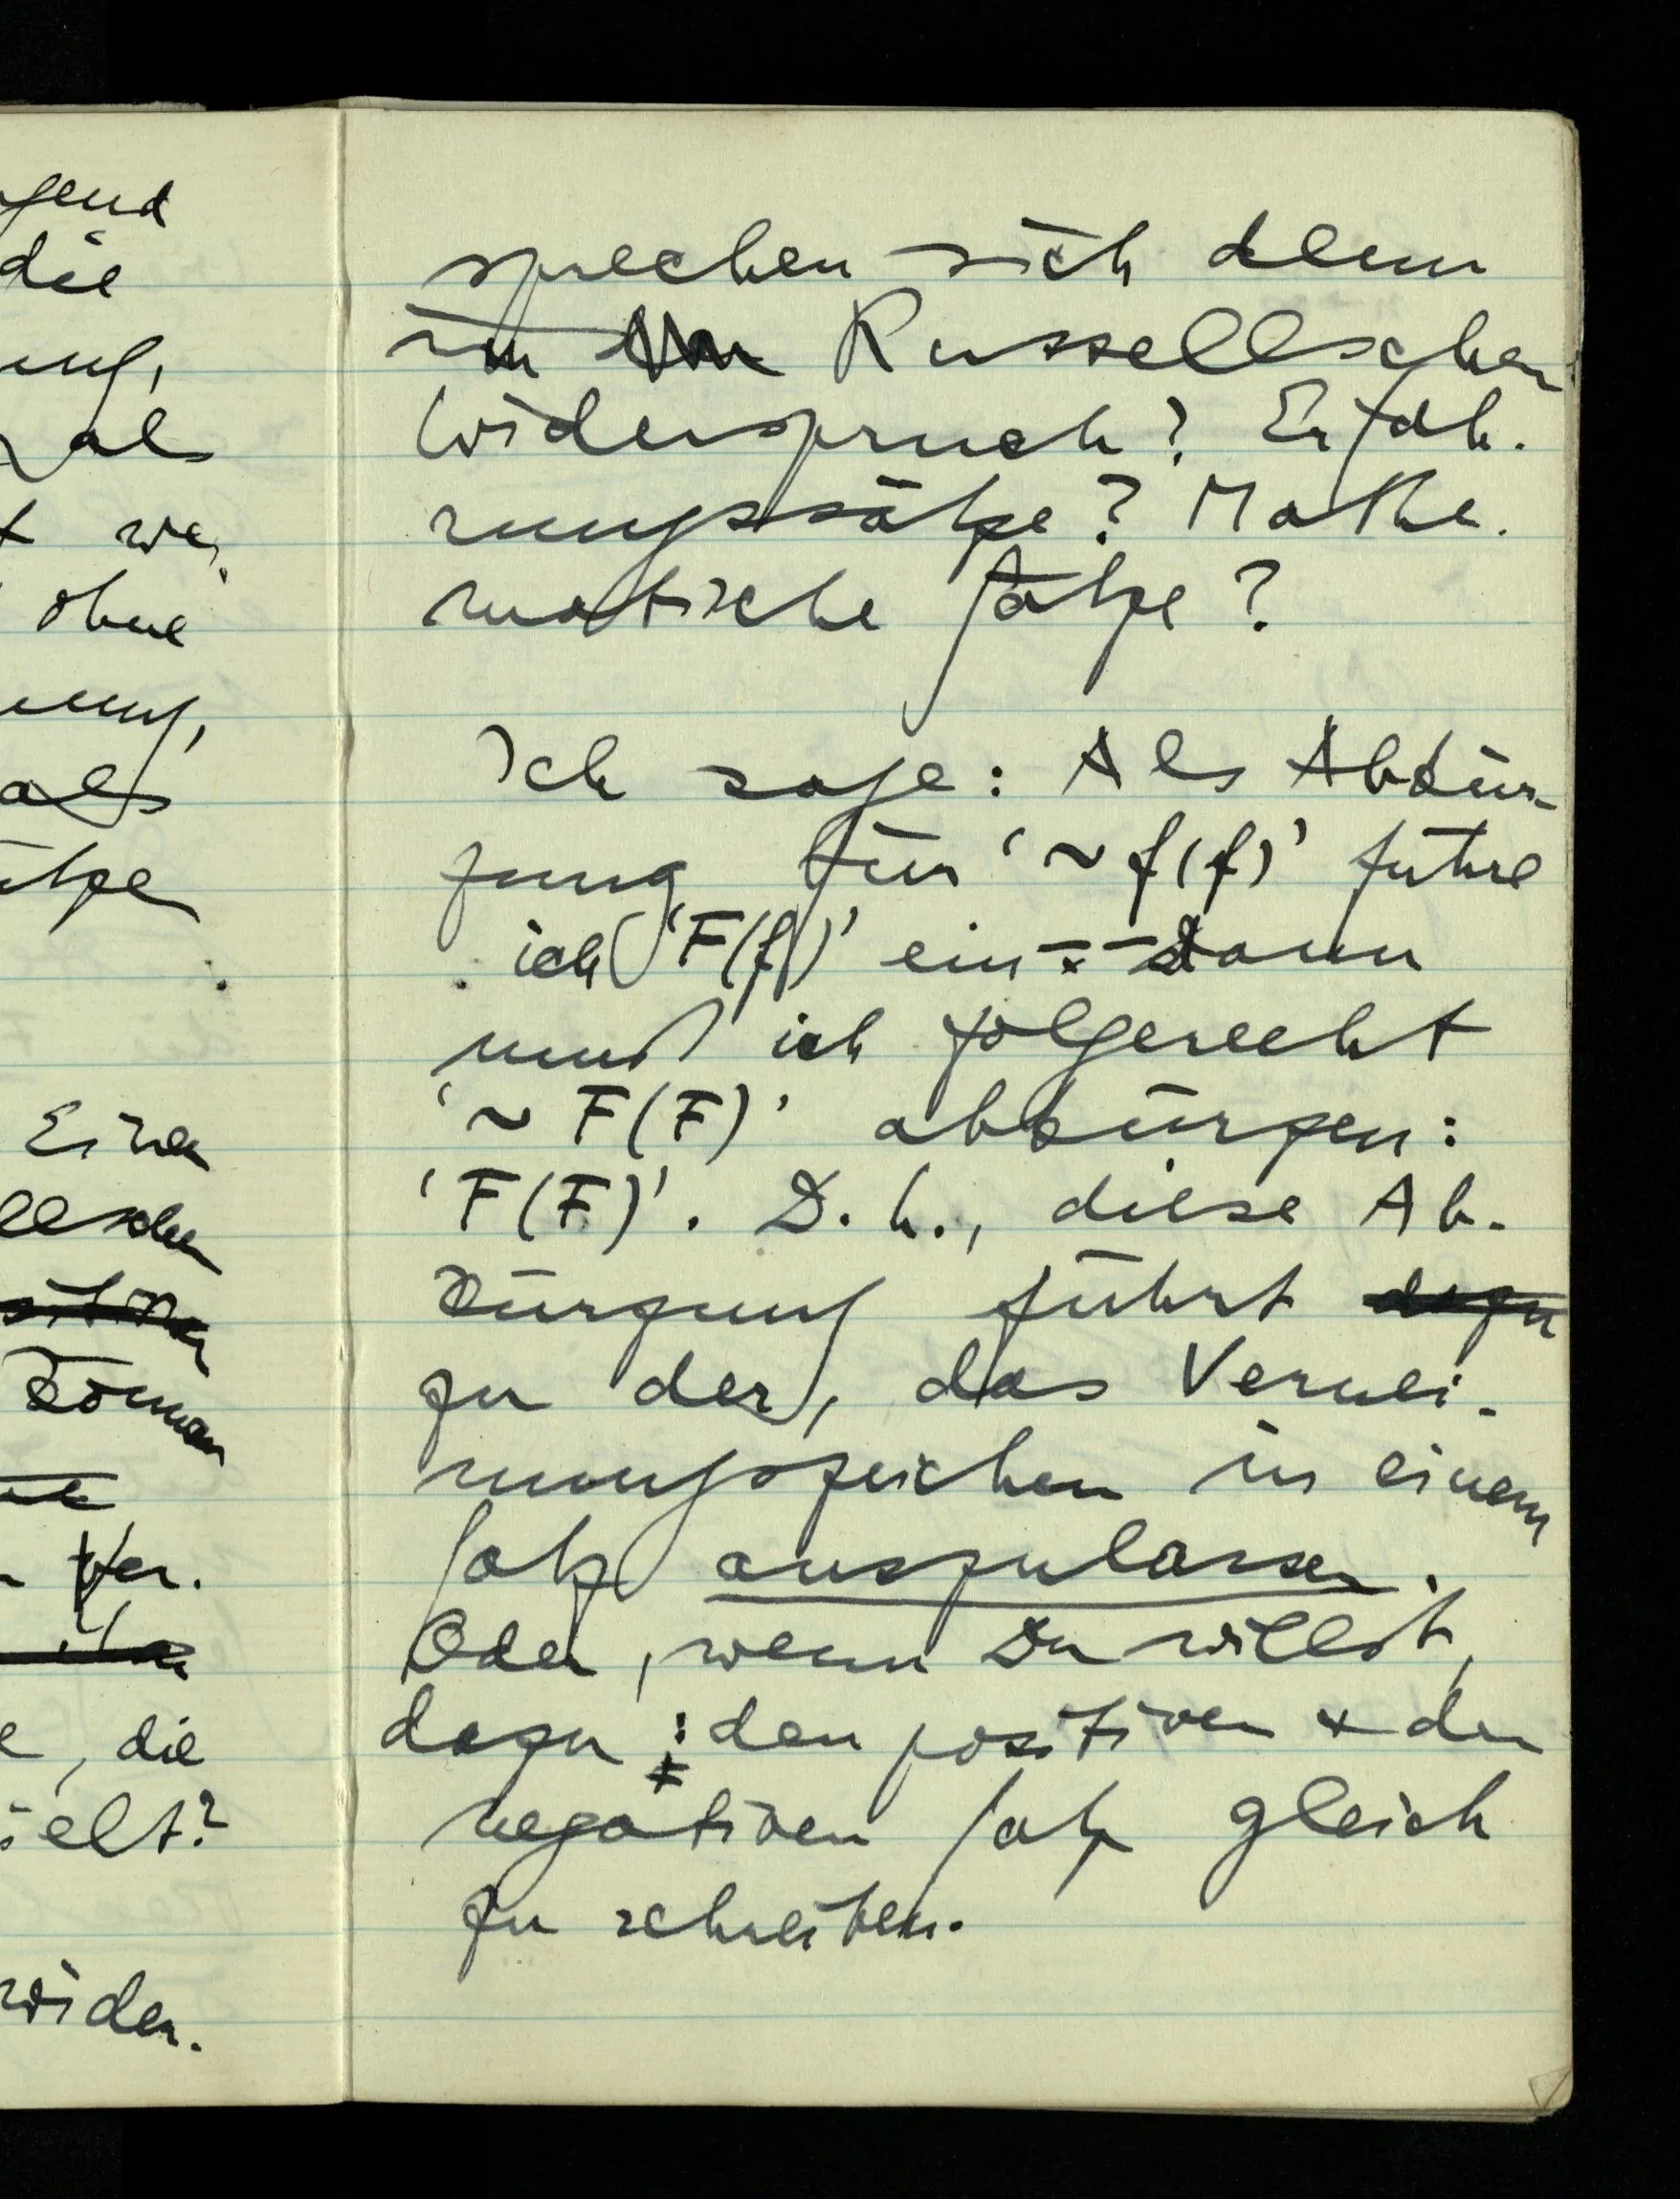 gend
die
ung,
als
t wer
ohne
nung,
als
ätze
Einen
llschen
können
Ver-
e, die
ielt?
wider-
sprechen sich denn
im Russellschen
Widerspruch? Erfah-
rungssätze? Mathe-
matische Sätze?
Ich sage: Als Abkür-
zung für ‘~f(f)’ führe
ich ‘F(f)’ ein -- dann
muß ich folgerecht
‘~F(F)’ abkürzen:
‘F(F)’. D.h., diese Ab-
kürzung führt dazu
zu der, das Vernei-
nungszeichen in einem
Satz auszulassen.
Oder, wenn Du willst,
dazu: den positiven & den
negativen Satz gleich
zu schreiben.